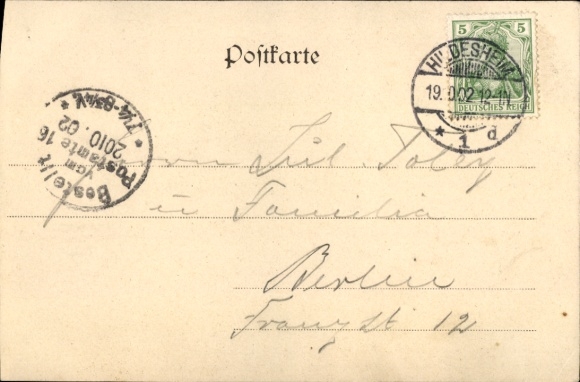 5 5
DEUTSCHES REICH
Postkarte
HILDESHEIM
19.10.02.12-1N.
* 1 d
Bestellt
vom
Postamte 16
20 10. 02
* 7¼-8¾V. *
Herrn Jul.
u Familie
Berlin
Franzst 12